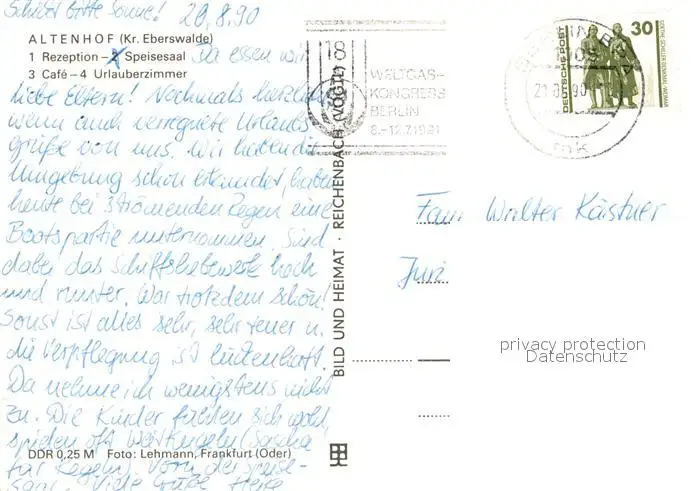 Schickt bitte Sonne! 20.8.90
ALTENHOF (Kr. Eberswalde)
1 Rezeption – 2 Speisesaal Da essen wir
3 Café – 4 Urlauberzimmer
Liebe Eltern! Nochmals herzliche
wenn auch verregnete Urlaubs-
grüße von uns. Wir haben die
Umgebung schon erkundet, haben
heute bei strömenden Regen eine
Bootspartie unternommen. Sind
dabei das Schiffshebewerk hoch
und runter. War trotzdem schön!
Sonst ist alles sehr, sehr teuer u.
die Verpflegung ist lückenhaft.
Da nehme ich wenigstens nicht
zu. Die Kinder fühlen sich wohl,
spielen oft
für Kegeln). Vorn der Speise-
saal. Viele Grüße Heike
DDR 0,25 M Foto: Lehmann, Frankfurt (Oder)
BILD UND HEIMAT · REICHENBACH (VOGTL)
WELTGAS-
KONGRESS
BERLIN
8.–12.7.1991
DEUTSCHE POST
30
GOETHE-SCHILLER-DENKMAL · WEIMAR
BERLIN
21.08.90
mk
Fam. Walter Kästner
privacy protection
Datenschutz